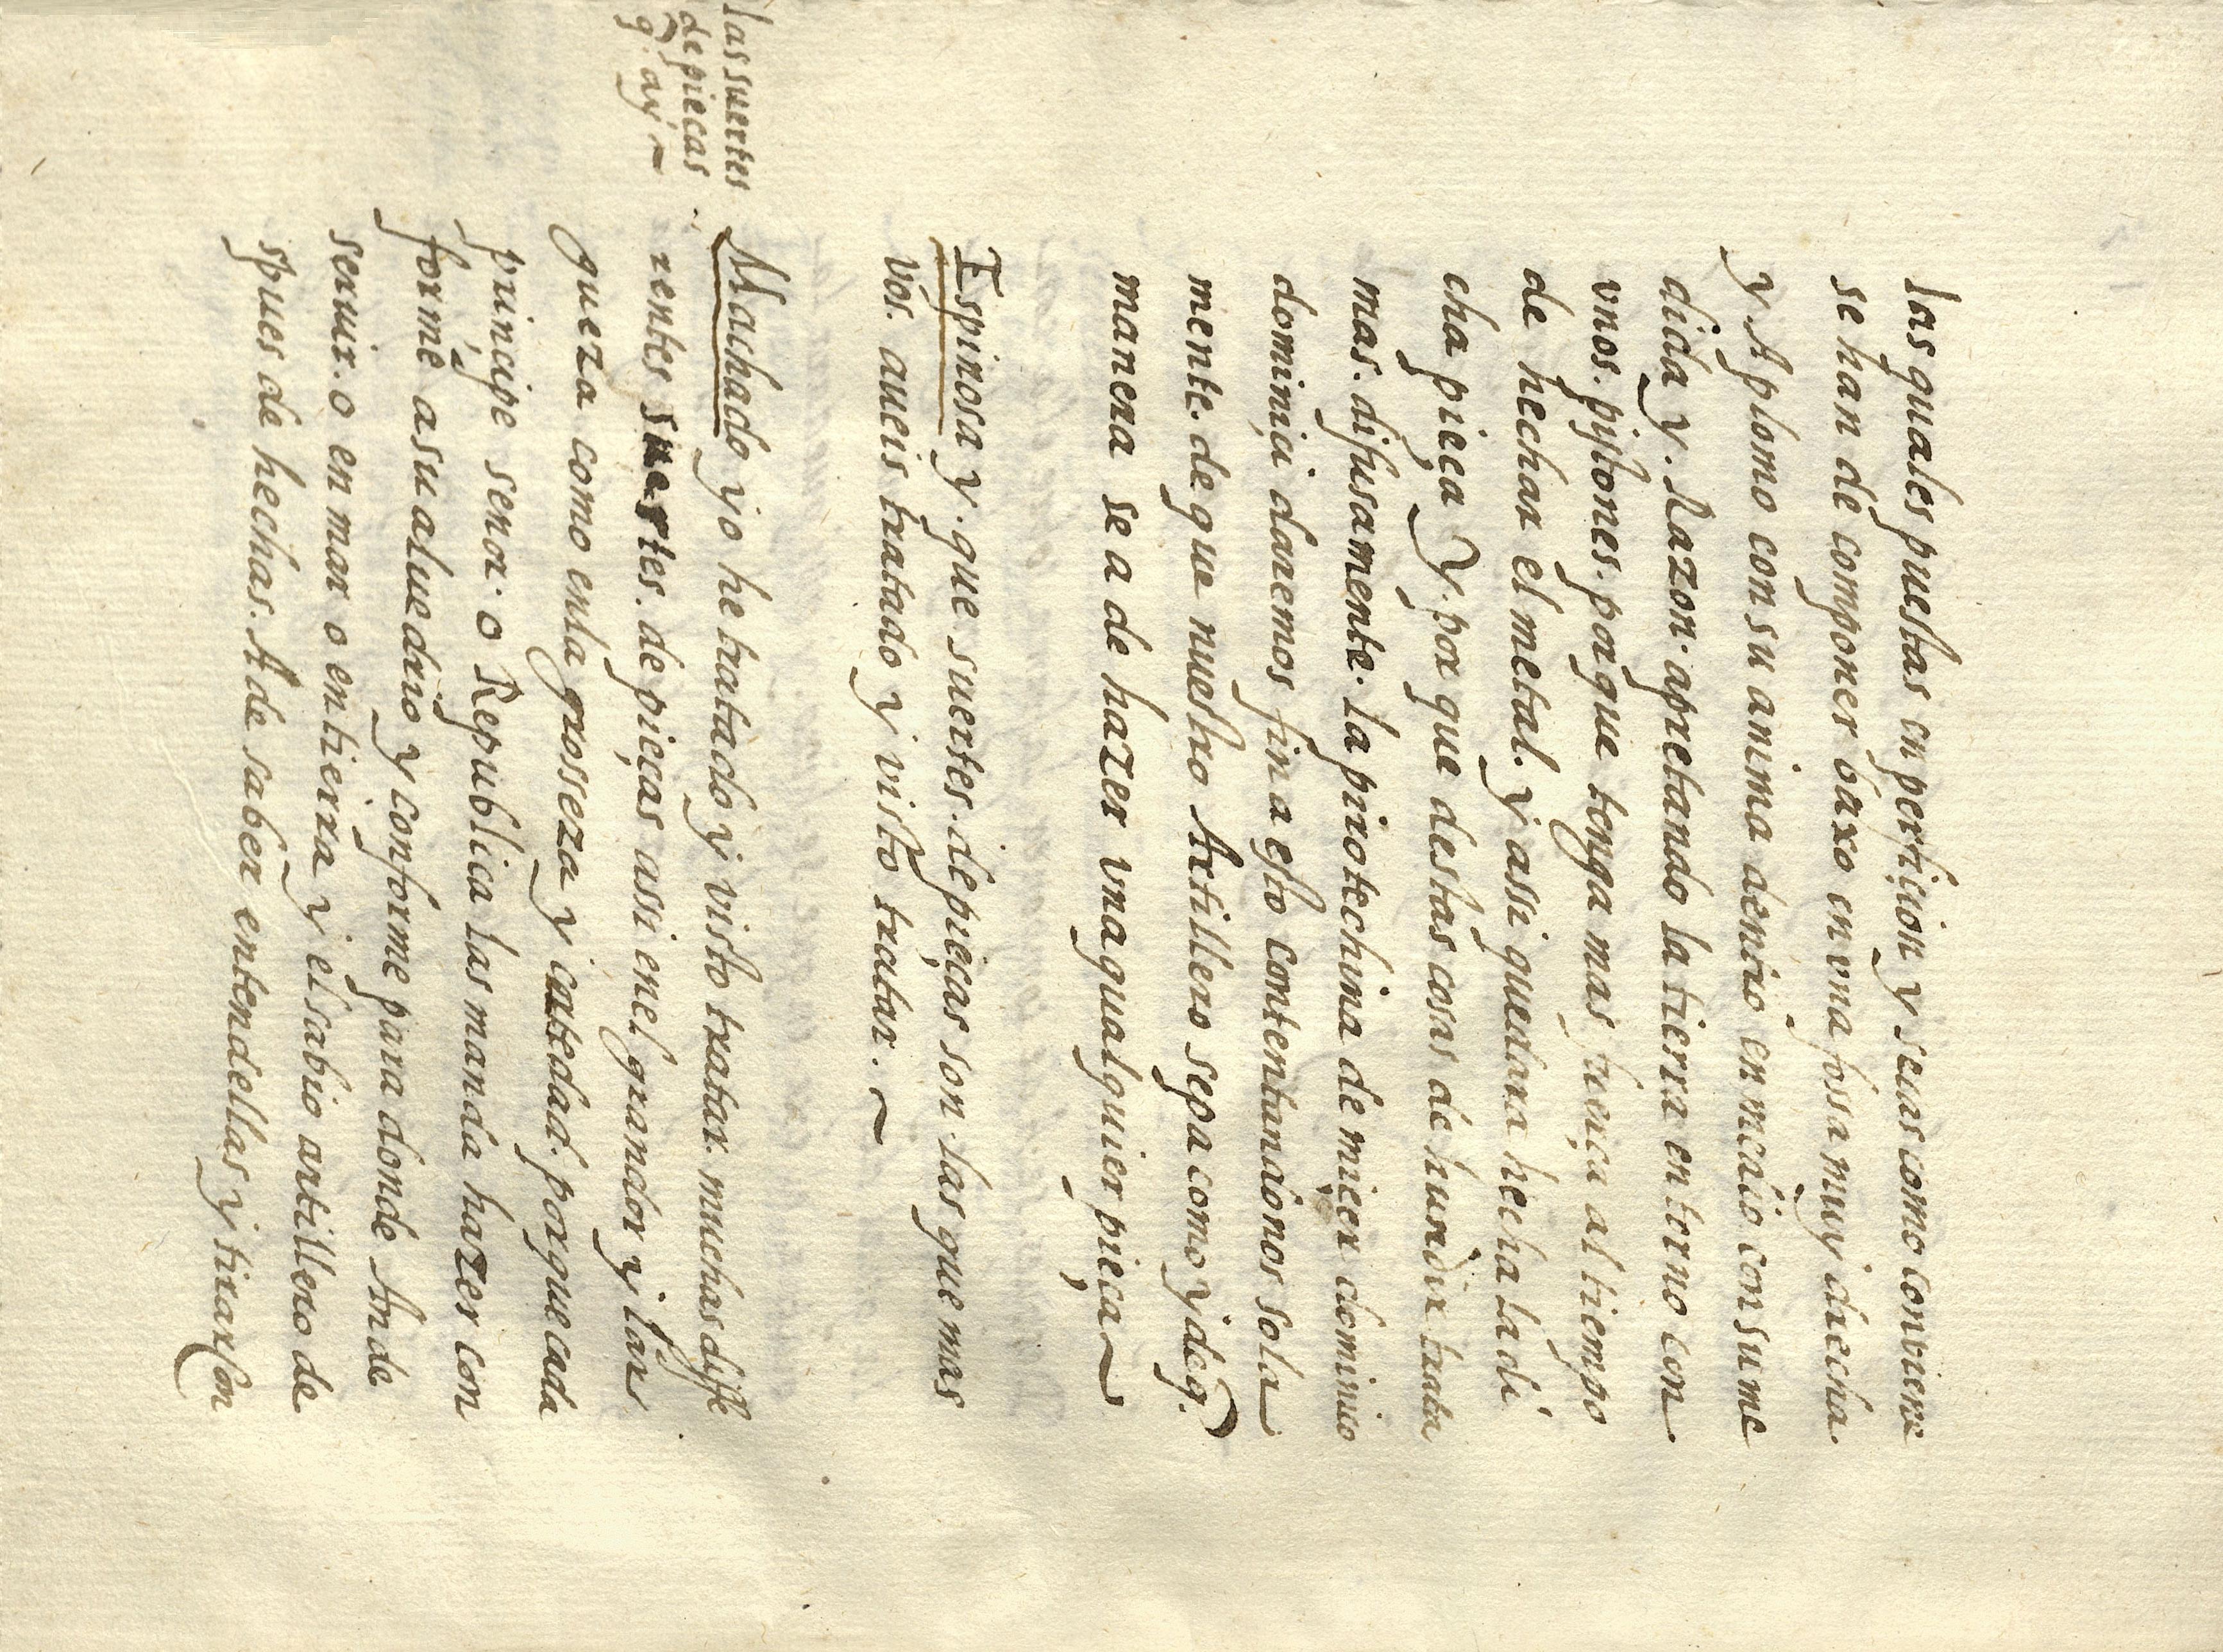 las quales puestas en perficion y secas como conviene
se han de componer baxo en vna fossa muy derecha.
y Aplomo con su anima dentro en medio con su me
dida y. Razon. apretando la tierra en torno con
vnos. pistones. porque tenga mas fuerça al tiempo
de hechar el metal. y assi quedara hecha la di
cha pieça y. por que destas cosas de hundir trata
mas. difusamente. la pirotechina de micer dominico
dominici daremos fin a esto contentandonos sola
mente. de que nuestro Artillero sepa como y de q.
manera se a de hazer vna qualquier pieça ~
Espinosa y. que suertes. de pieças son las que mas
vos. aueis tratado y visto tratar. ~
las suertes
de pieças
q̃. ay. ~
Machado yo he tratado y visto tratar. muchas diffe
rentes suertes. de pieças assi en el grandor y lar
gueza como en la grosseza y cantedad. porque cada
principe senor. o Republica las manda hazer con
forme a su aluedrio y conforme para donde An de
seruir. o en mar o en tierra y el sabio artillero de
spues de hechas. A de saber entendellas y tirar con